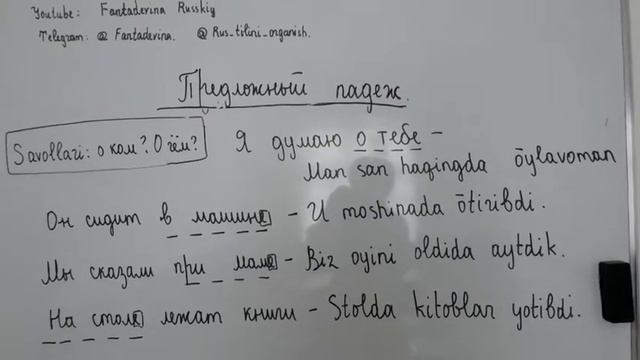 Youtube: Fantaderina Russkiy
Telegram: @ Fantaderina. @ Rus_tilini_organish.
Предложный падеж.
Savollari: о ком? О чём?
Я думаю о тебе -
Man san haqingda ōylavoman
Он сидит в машине - U moshinada ōtiribdi.
Мы сказали при маме - Biz oyini oldida aytdik.
На столе лежат книги - Stolda kitoblar yotibdi.